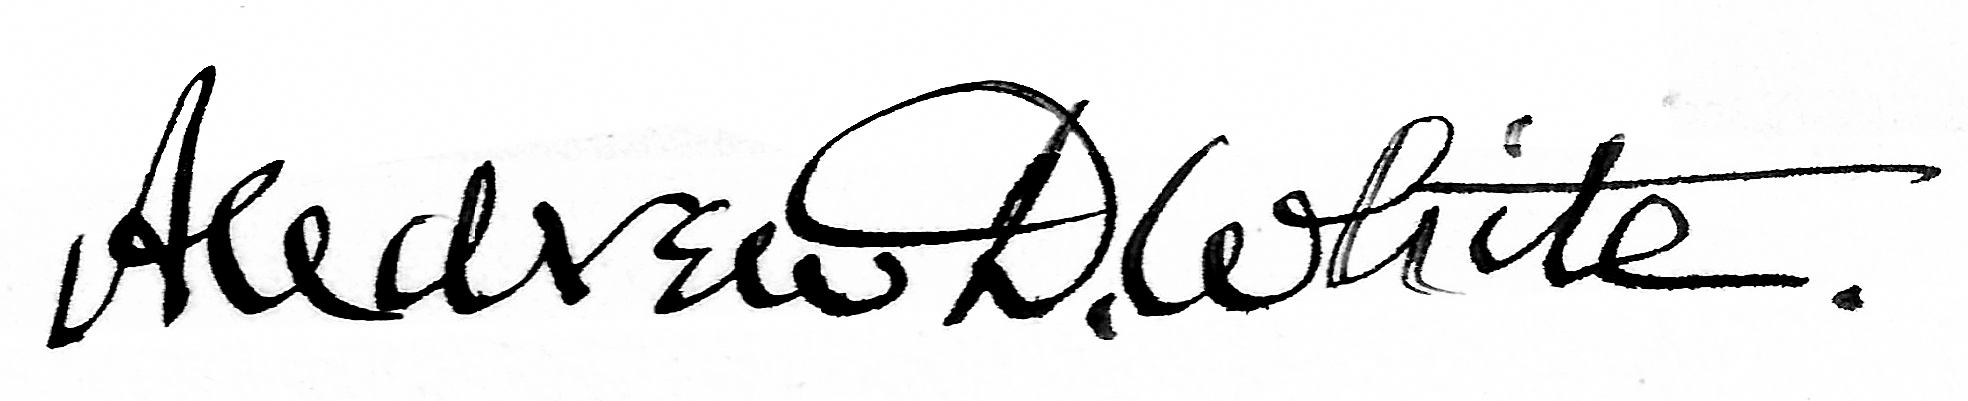 Andrew D. White.